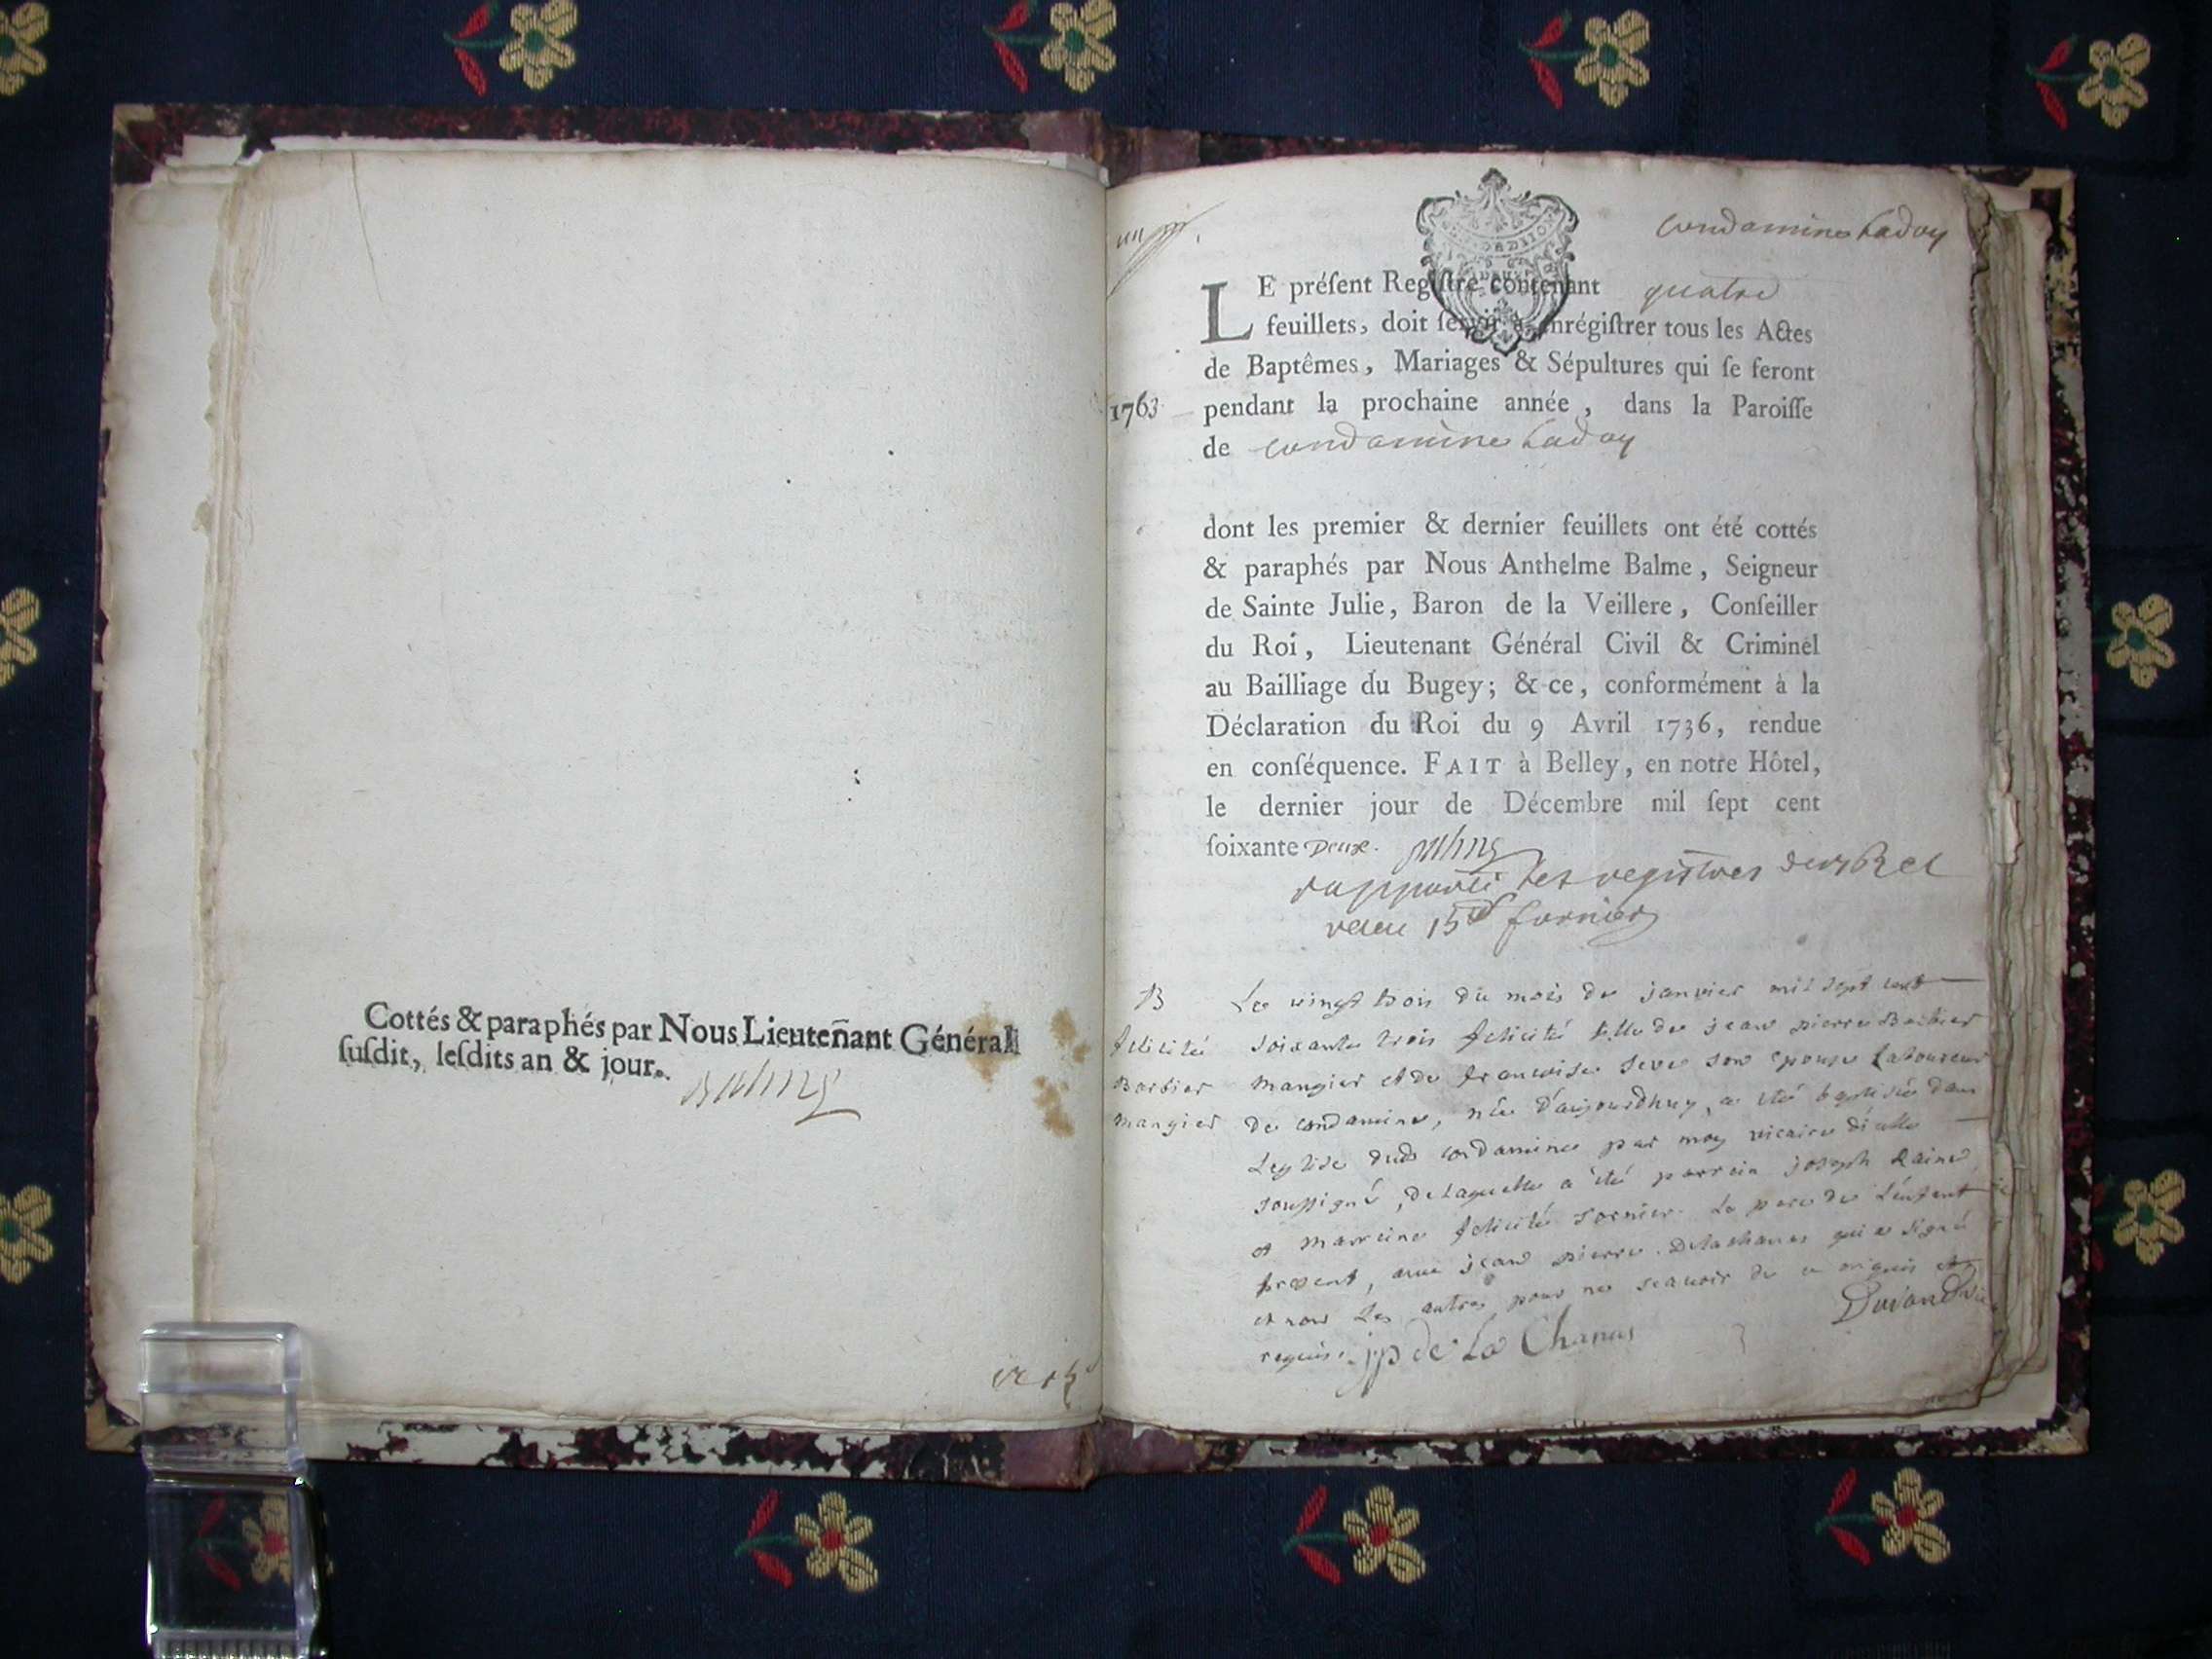 Cottés & paraphés par Nous Lieuteñant Général
ſuſdit, leſdits an & jour.
Condamine Ladoy
LE préſent Regiſtre contenant quatre
feuillets, doit ſervir à enrégiſtrer tous les Actes
de Baptêmes, Mariages & Sépultures qui ſe feront
1763 pendant la prochaine année, dans la Paroiſſe
de Condamine Ladoy
dont les premier & dernier feuillets ont été cottés
& paraphés par Nous Anthelme Balme, Seigneur
de Sainte Julie, Baron de la Veillere, Conſeiller
du Roi, Lieutenant Général Civil & Criminel
au Bailliage du Bugey; & ce, conformément à la
Déclaration du Roi du 9 Avril 1736, rendue
en conſéquence. FAIT à Belley, en notre Hôtel,
le dernier jour de Décembre mil ſept cent
ſoixante Deux.
rapporté les registres
15 fornier
B
felicité
Barbier
mangier
Le vingt trois du mois de janvier mil sept cent
soixante trois felicité fille de jean pierre Barbier
mangier et de francoise seve son epouse Laboureur
de condamine, née d'aujourdhuy, a été baptisée dans
Leglise dud condamine par moy vicaire d'icelle
soussigné, de laquelle a été parrein joseph Raine
et marreine felicité sornier. Le pere de L'enfant
present, avec jean pierre Delachanas qui a signé
et non Les autres pour ne scauoir de ce enquis et
requis. jp de La Chanas